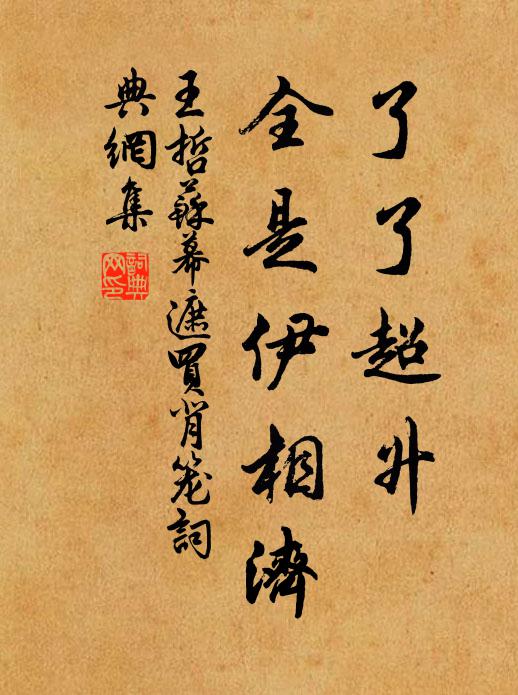 了了超升
全是伊相濟
王哲蘇幕遮買肖笼詞
典網集
詞典網印